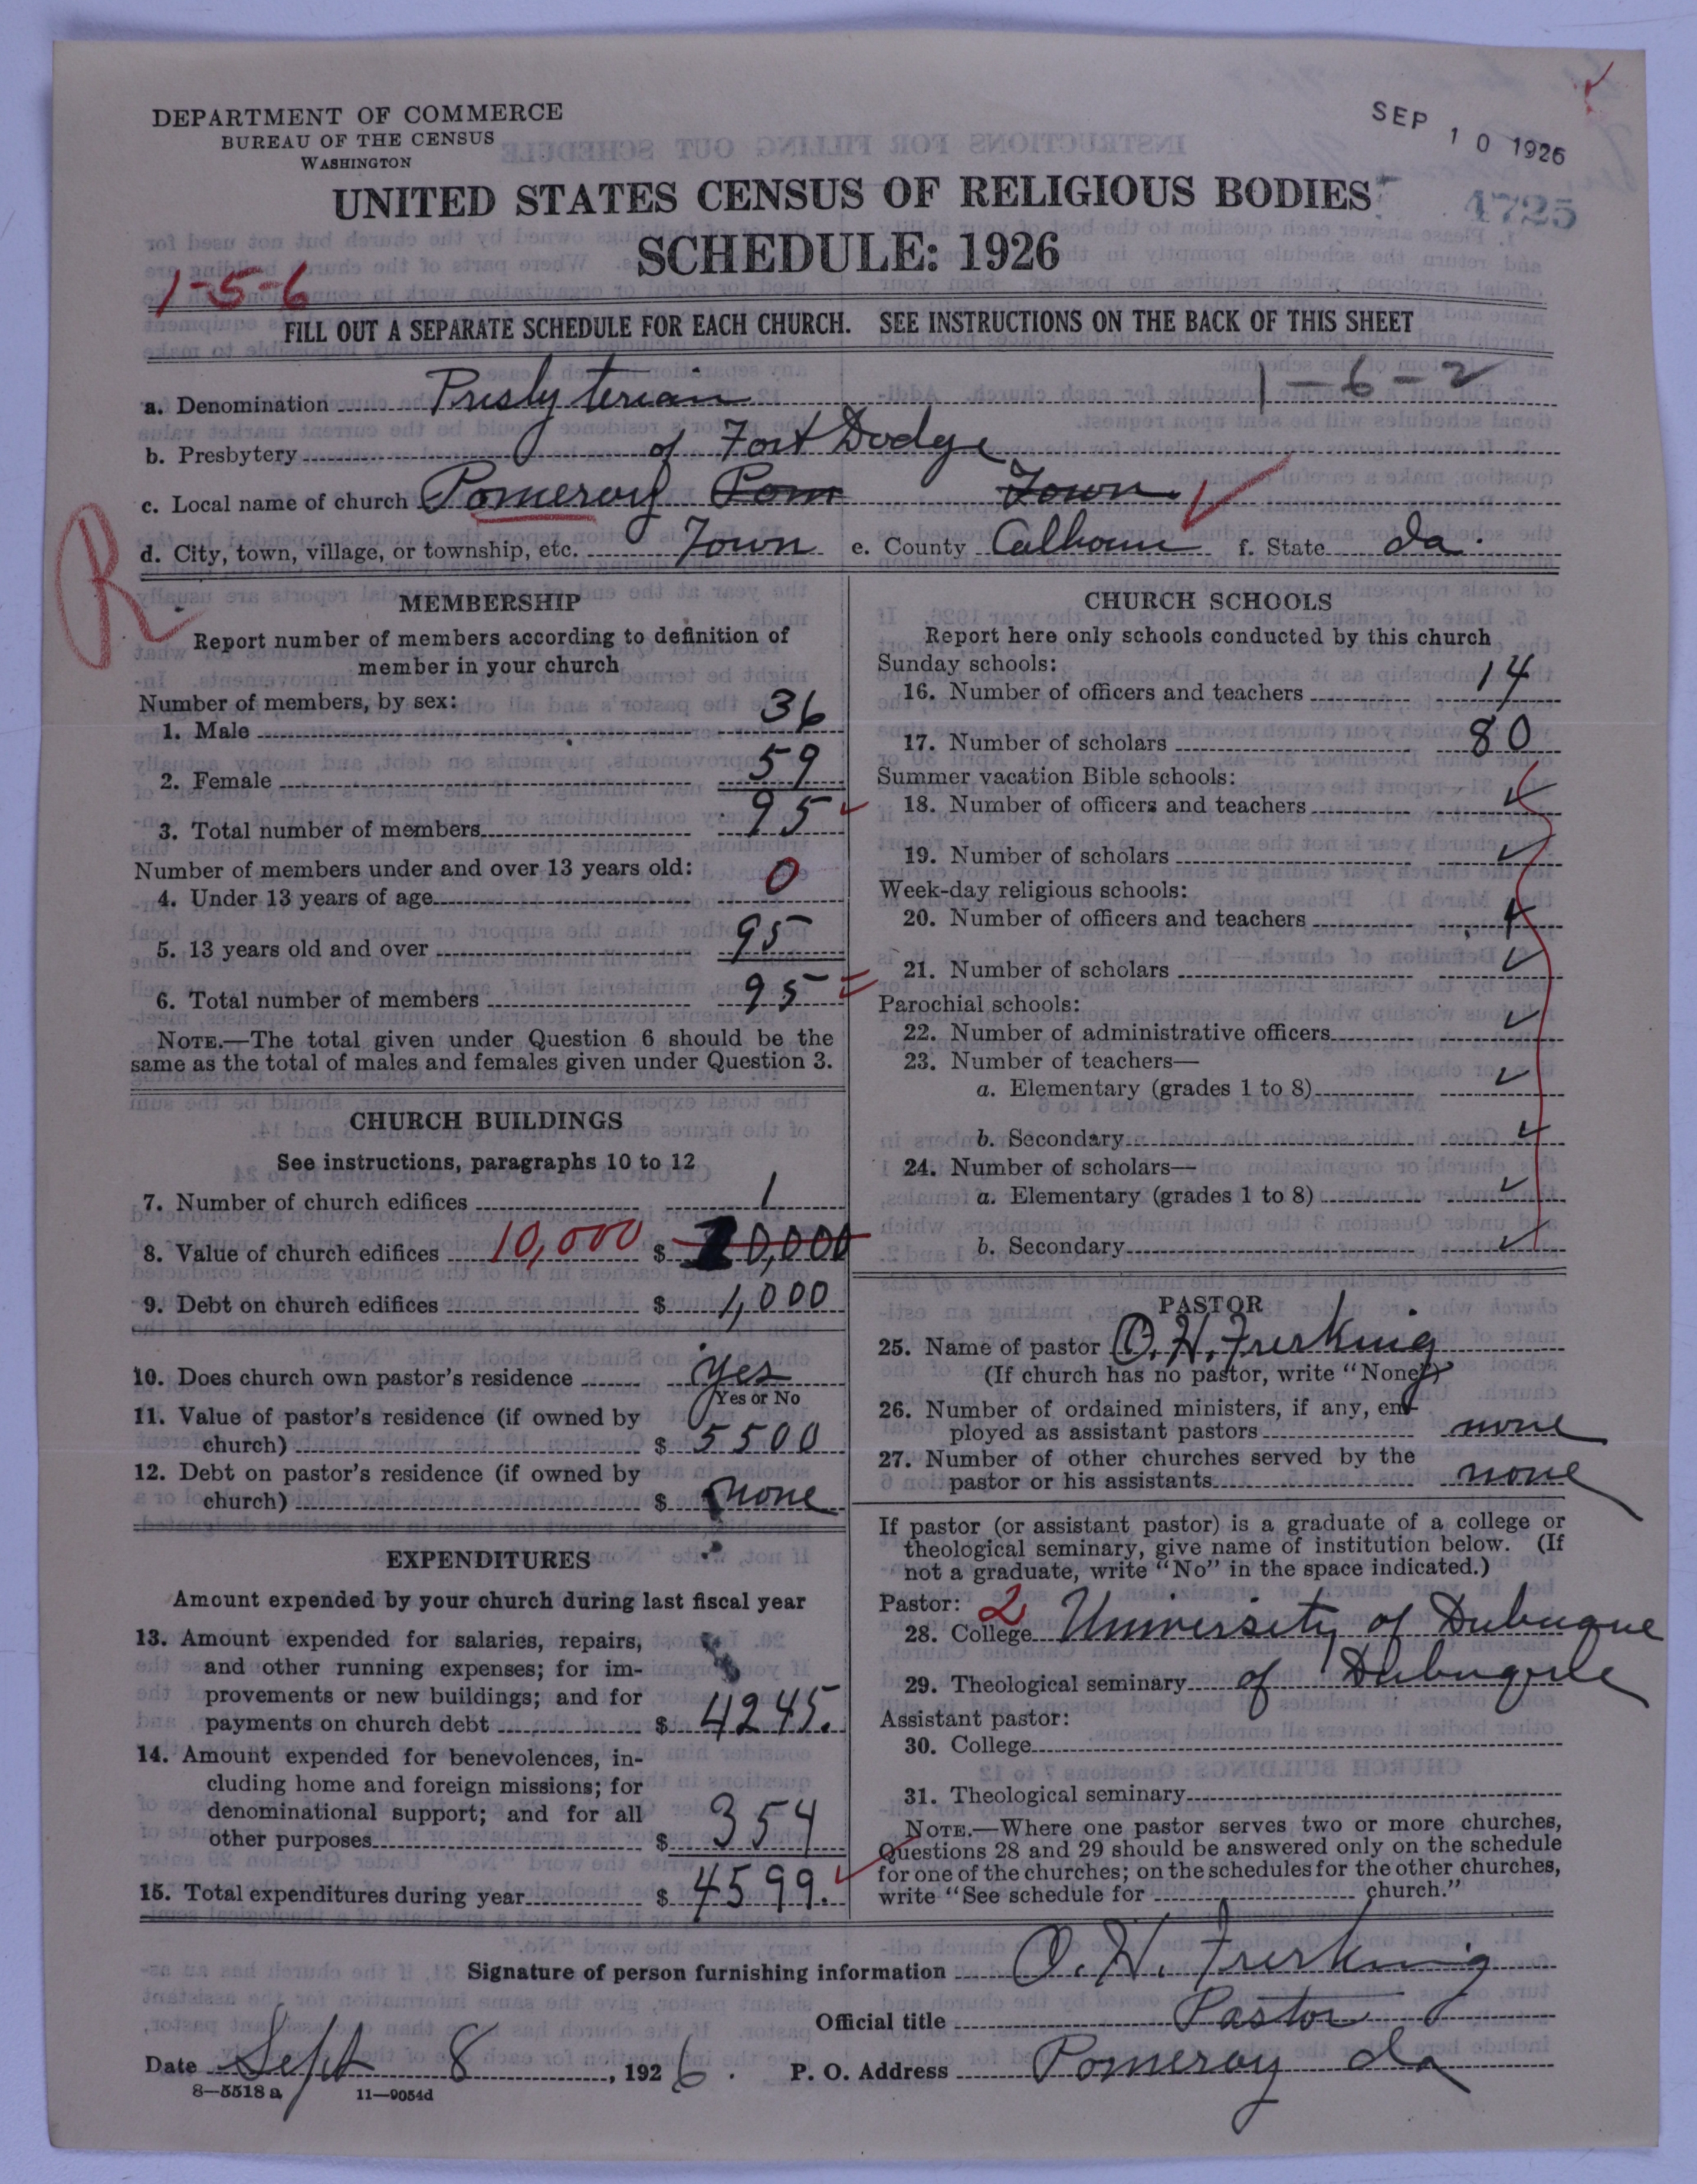 DEPARTMENT OF COMMERCE
BUREAU OF THE CENSUS
WASHINGTON
SEP 10 1926
4725
UNITED STATES CENSUS OF RELIGIOUS BODIES
SCHEDULE: 1926
1-5-6
FILL OUT A SEPARATE SCHEDULE FOR EACH CHURCH. SEE INSTRUCTIONS ON THE BACK OF THIS SHEET
1-6-2
a. Denomination Presbyterian
b. Presbytery of Fort Dodge
c. Local name of church Pomeroy Pom Town
d. City, town, village, or township, etc. Town e. County Calhoun f. State Ia.
R
MEMBERSHIP
Report number of members according to definition of
member in your church
Number of members, by sex:
1. Male 36
2. Female 59
3. Total number of members 95
Number of members under and over 13 years old:
4. Under 13 years of age 0
5. 13 years old and over 95
6. Total number of members 95
NOTE.—The total given under Question 6 should be the
same as the total of males and females given under Question 3.
CHURCH BUILDINGS
See instructions, paragraphs 10 to 12
7. Number of church edifices 1
8. Value of church edifices 10,000 $ 10,000
9. Debt on church edifices $ 1,000
10. Does church own pastor's residence yes
Yes or No
11. Value of pastor's residence (if owned by
church) $ 5500
12. Debt on pastor's residence (if owned by
church) $ none
EXPENDITURES
Amount expended by your church during last fiscal year
13. Amount expended for salaries, repairs,
and other running expenses; for im-
provements or new buildings; and for
payments on church debt $ 4245.
14. Amount expended for benevolences, in-
cluding home and foreign missions; for
denominational support; and for all
other purposes $ 354
15. Total expenditures during year $ 4599.
CHURCH SCHOOLS
Report here only schools conducted by this church
Sunday schools:
16. Number of officers and teachers 14
17. Number of scholars 80
Summer vacation Bible schools:
18. Number of officers and teachers
19. Number of scholars
Week-day religious schools:
20. Number of officers and teachers
21. Number of scholars
Parochial schools:
22. Number of administrative officers
23. Number of teachers—
a. Elementary (grades 1 to 8)
b. Secondary
24. Number of scholars—
a. Elementary (grades 1 to 8)
b. Secondary
PASTOR
25. Name of pastor O. H. Frerking
(If church has no pastor, write "None")
26. Number of ordained ministers, if any, em-
ployed as assistant pastors none
27. Number of other churches served by the
pastor or his assistants none
If pastor (or assistant pastor) is a graduate of a college or
theological seminary, give name of institution below. (If
not a graduate, write "No" in the space indicated.)
Pastor: 2
28. College University of Dubuque
29. Theological seminary of Dubuque
Assistant pastor:
30. College
31. Theological seminary
NOTE.—Where one pastor serves two or more churches,
Questions 28 and 29 should be answered only on the schedule
for one of the churches; on the schedules for the other churches,
write "See schedule for church."
Signature of person furnishing information O. H. Frerking
Official title Pastor
Date Sept 8, 1926. P. O. Address Pomeroy Ia
8—5518 a 11—9054d